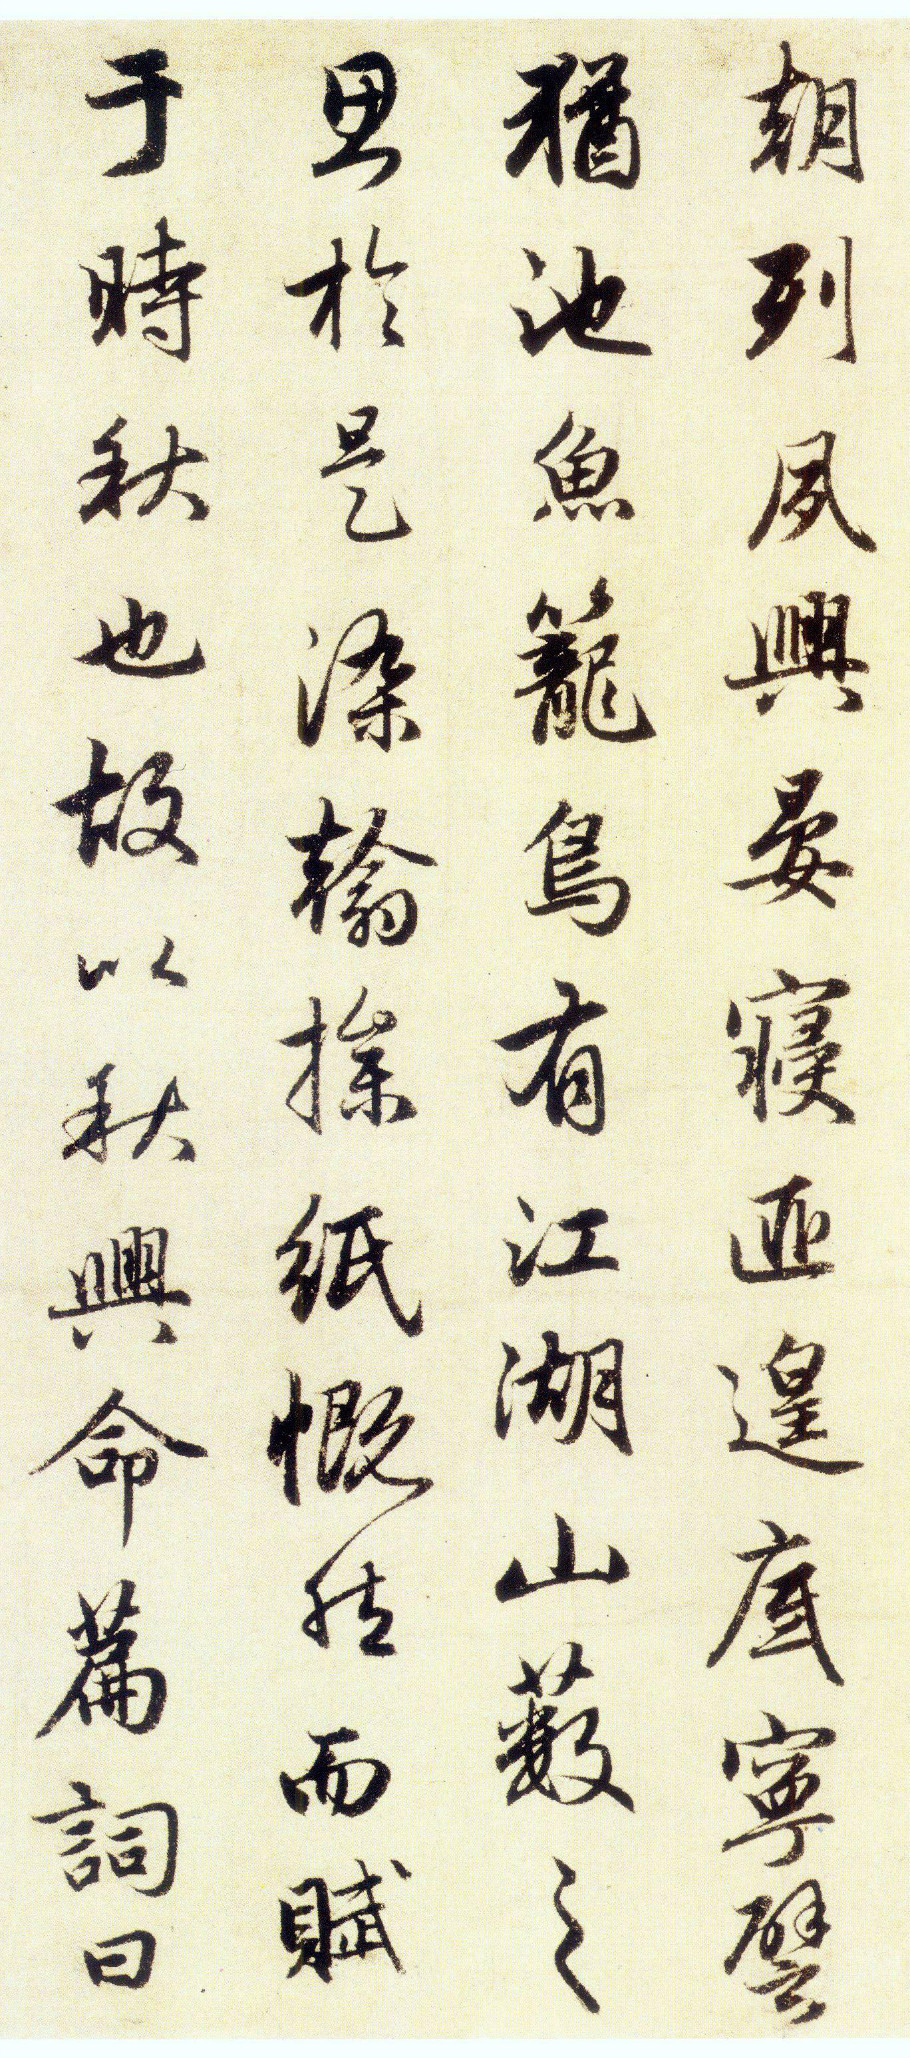 朝列夙興晏寢匪遑底寧譬
猶池魚籠鳥有江湖山薮之
思於是染翰操紙慨然而賦
于時秋也故以秋興命篇詞曰